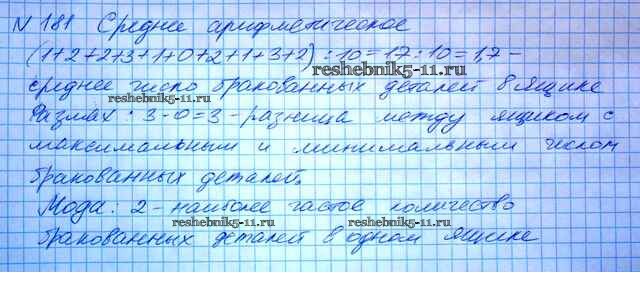 № 181 Среднее арифметическое
(1+2+2+3+1+0+2+1+3+2) : 10 = 17 : 10 = 1,7 –
reshebnik5-11.ru
среднее число бракованных деталей в ящике
reshebnik5-11.ru
Размах : 3-0=3 - разница между ящиком с
максимальным и минимальным числом
бракованных деталей.
Мода : 2 - наиболее частое количество
reshebnik5-11.ru reshebnik5-11.ru
бракованных деталей в одном ящике